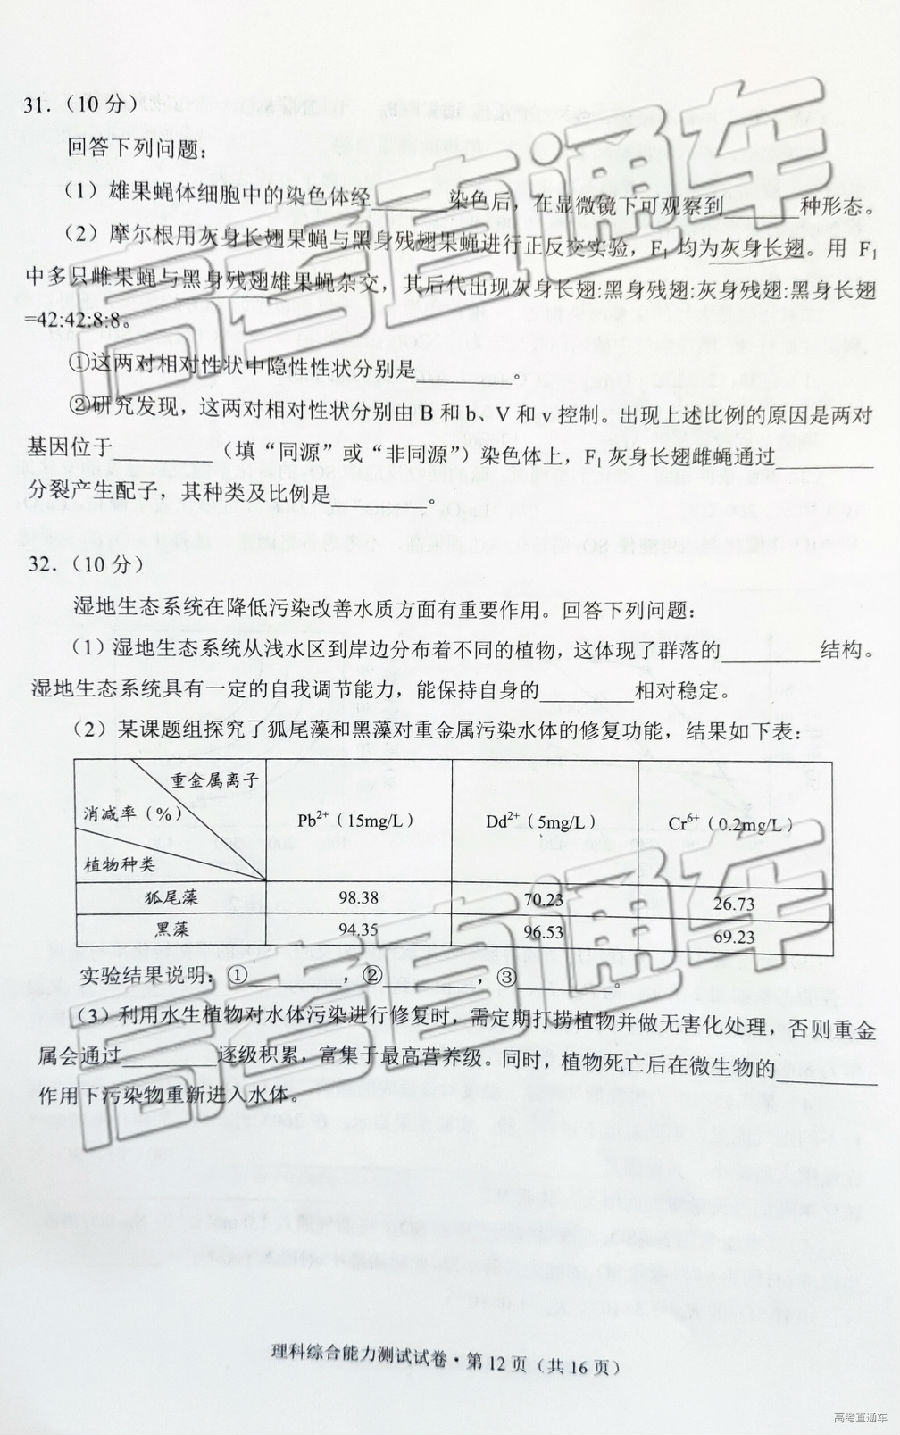 31．（10 分）
回答下列问题：
（1）雄果蝇体细胞中的染色体经________染色后，在显微镜下可观察到________种形态。
（2）摩尔根用灰身长翅果蝇与黑身残翅果蝇进行正反交实验，F₁ 均为灰身长翅。用 F₁
中多只雌果蝇与黑身残翅雄果蝇杂交，其后代出现灰身长翅:黑身残翅:灰身残翅:黑身长翅
=42:42:8:8。
①这两对相对性状中隐性性状分别是________。
②研究发现，这两对相对性状分别由 B 和 b、V 和 v 控制。出现上述比例的原因是两对
基因位于________（填“同源”或“非同源”）染色体上，F₁ 灰身长翅雌蝇通过________
分裂产生配子，其种类及比例是________。
32．（10 分）
湿地生态系统在降低污染改善水质方面有重要作用。回答下列问题：
（1）湿地生态系统从浅水区到岸边分布着不同的植物，这体现了群落的________结构。
湿地生态系统具有一定的自我调节能力，能保持自身的________相对稳定。
（2）某课题组探究了狐尾藻和黑藻对重金属污染水体的修复功能，结果如下表：
重金属离子
消减率（%）
植物种类
Pb²⁺（15mg/L） Dd²⁺（5mg/L） Cr⁶⁺（0.2mg/L）
狐尾藻 98.38 70.23 26.73
黑藻 94.35 96.53 69.23
实验结果说明：①________，②________，③________。
（3）利用水生植物对水体污染进行修复时，需定期打捞植物并做无害化处理，否则重金
属会通过________逐级积累，富集于最高营养级。同时，植物死亡后在微生物的________
作用下污染物重新进入水体。
理科综合能力测试试卷·第 12 页（共 16 页）
高考直通车
高考直通车
高考直通车